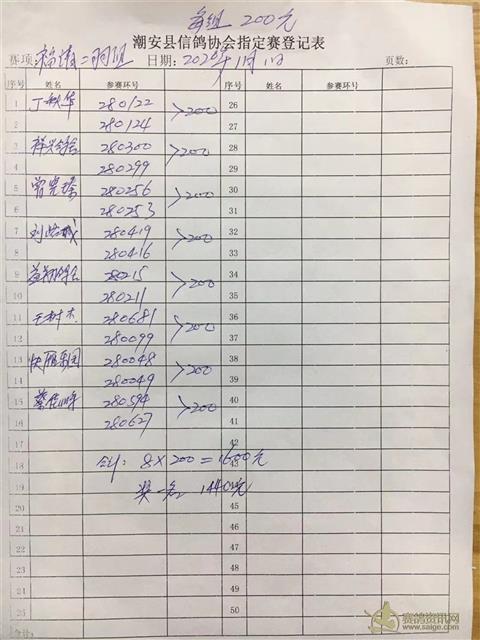 每组 200元
潮安县信鸽协会指定赛登记表
赛项: 福清二羽组 日期: 2020年1月1日 页数:
序号 姓名 参赛环号 序号 姓名 参赛环号
1 丁秋华 280122 >200 26
2 280124 27
3 祥兴鸽舍 280300 >200 28
4 280299 29
5 280256 >200 30
6 280253 31
7 280419 >200 32
8 280416 33
9 280215 >200 34
10 280211 35
11 王树杰 280681 >200 36
12 280099 37
13 快雁乐园 280048 >200 38
14 280049 39
15 280594 >200 40
16 280627 41
17 42
18 合计: 8×200=1600元 43
19 奖一名 1440元 44
20 45
21 46
22 47
23 48
24 49
25 50
合计:
赛鸽资讯网
www.saige.com